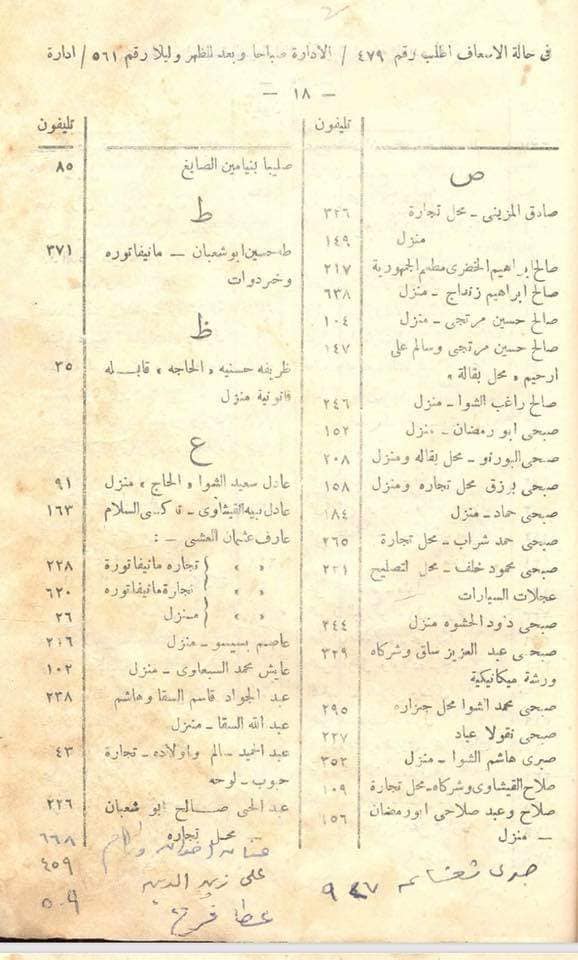 فى حالة الاسعاف اطلب رقم ٤٧٩ / الادارة صباحا وبعد الظهر وليلا رقم ٥٦١ / ادارة
— ١٨ —
تليفون
ص
صادق المزينى - محل تجارة ٣٢٦
منزل ١٤٩
صالح ابراهيم الخضرى مطعم الجمهورية ٢١٧
صالح ابراهيم زنداح - منزل ٦٣٨
صالح حسين مرتجى - منزل ١٠٤
صالح حسين مرتجى وسالم على ١٤٧
ارحيم « محل بقالة »
صالح راغب الشوا - منزل ٢٤٦
صبحى ابو رمضان - منزل ١٥٢
صبحى البورنو - محل بقاله ومنزل ٢٠٨
صبحى برزق محل تجاره ومنزل ١٥٨
صبحى حماد - منزل ١٨٤
صبحى حمد شراب - محل تجارة ٢٦٥
صبحى محمود خلف - محل لتصليح ٢٣١
عجلات السيارات
صبحى داود الحشوه منزل ٢٤٤
صبحى عبد العزيز ساق وشركاه ٣٢٩
ورشة ميكانيكية
صبحى محمد الشوا محل جزاره ٢٩٥
صبحى نقولا عياد ٢٢٧
صبرى هاشم الشوا - منزل ٣٥٢
صلاح القيشاوى وشركاه - محل تجارة ١٠٩
صلاح وعيد صلاحى ابو رمضان ١٥٦
- منزل
٩٤٧
تليفون
صليبا بنيامين الصايغ ٨٥
ط
طه حسين ابو شعبان — مانيفاتوره ٣٧١
وخردوات
ظ
ظريفه حسنيه « الحاجه » قابله ٣٥
قانونية منزل
ع
عادل سعيد الشوا « الحاج » منزل ٩١
عادل نبيه القيشاوى - تاكسى السلام ١٦٣
عارف عثمان العشى - :
« « تجاره مانيفاتورة ٢٢٨
« « تجارة مانيفاتوره ٦٢٠
« « منزل ٢٦
عاصم بسيسو - منزل ٢٠٦
عايش محمد السبعاوى - منزل ١٠٢
عبد الجواد قاسم السقا وهاشم ٢٣٨
عبد الله السقا - منزل
عبد الحميد سالم واولاده - تجارة ٤٣
حبوب - لوحه
عبد الحى صالح ابو شعبان ٢٢٦
محل تجاره
٦٦٨
على زين الدين ٤٥٩
عطا فرح ٥٠٩